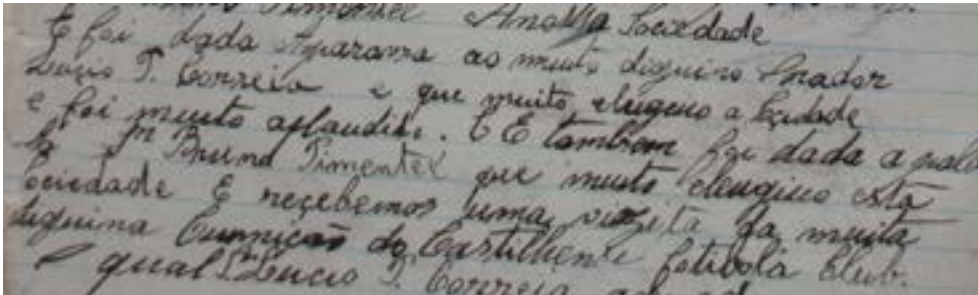 Pimentel Anossa Sociedade
E foi dada Aparavra ao muito diguino Orador
Lucio T. Correia e que muito elugeuo a Ciedade
e foi muito aplaudido. E também foi dada a pala
Bruno Pimentel que muito eleugiuo esta
Sociedade E recebemos uma vizita da muita
diguima Cumições do Castilhense fotibola Club.
O qual Lucio T. Correia